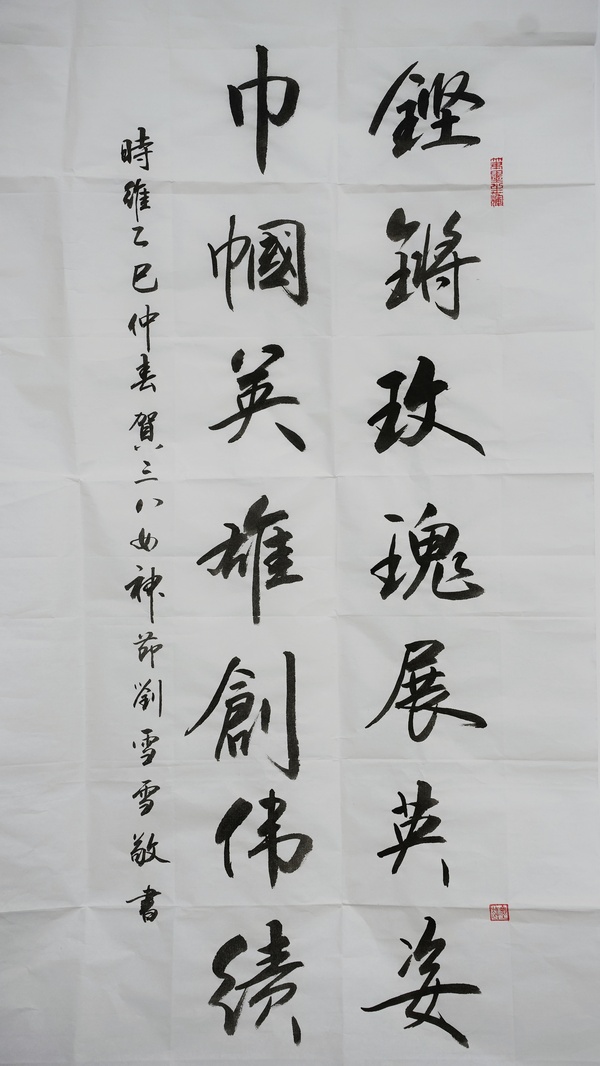 鏗鏘玫瑰展英姿
巾幗英雄創伟绩
時維乙巳仲春賀三八女神節劉雪雪敬書